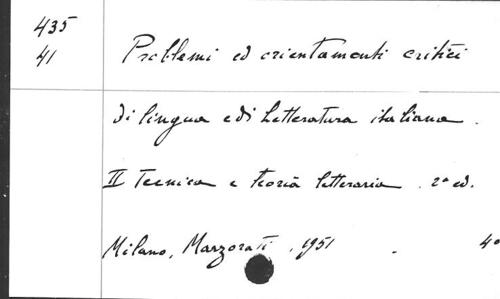 435
41
Problemi ed orientamenti critici
di lingua e di Letteratura italiana.
II Tecnica e teoria letteraria. 2ª ed.
Milano, Marzorati, 1951. 4°